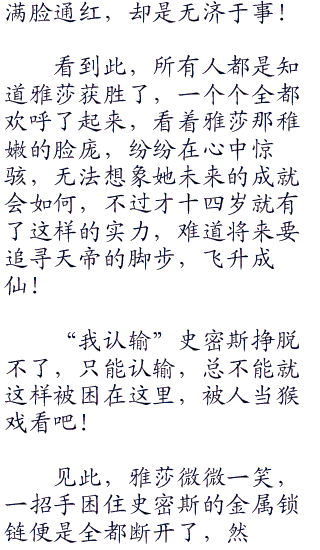 满脸通红，却是无济于事！
看到此，所有人都是知
道雅莎获胜了，一个个全都
欢呼了起来，看着雅莎那稚
嫩的脸庞，纷纷在心中惊
骇，无法想象她未来的成就
会如何，不过才十四岁就有
了这样的实力，难道将来要
追寻天帝的脚步，飞升成
仙！
“我认输”史密斯挣脱
不了，只能认输，总不能就
这样被困在这里，被人当猴
戏看吧！
见此，雅莎微微一笑，
一招手困住史密斯的金属锁
链便是全都断开了，然